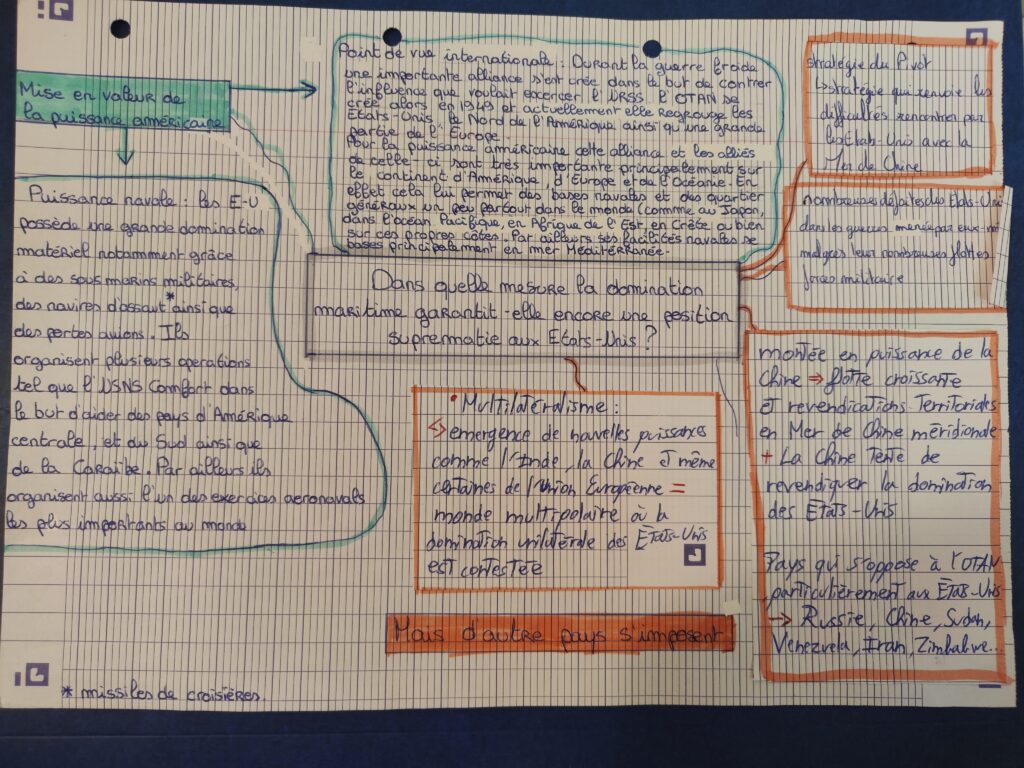 Mise en valeur de
la puissance américaine
Point de vue internationale : Durant la guerre froide
une importante alliance s'est crée dans le but de contrer
l'influence que voulait excercer l'URSS. l'OTAN se
crée alors en 1949 et actuellement elle Regrouge les
Etats-Unis, le Nord de l'Amérique ainsi qu'une grande
partie de l'Europe.
Pour la puissance amméricaine cette alliance et les alliés
de celle-ci sont très importante principalement sur
le continent d'Amérique, d'Europe et de l'Océanie. En
effet cela lui permet des bases navales et des quartier
généraux un peu partout dans le monde (comme au Japon,
dans l'océan Pacifique, en Afrique de l'Est, en Crète ou bien
sur ces propres côtes. Par ailleurs ses facilités navales se
bases principalement en mer Méditerranée.
stratégie du Pivot
↳ stratégie qui renvoie les
difficultés rencontrer par
les Etats-Unis avec la
Mer de Chine
nombreuses défaites des Etats-Uni
dans les guerres menée par eux-m
malgres leur nombreuses flottes
forces militaire
Puissance navale : les E-U
possède une grande domination
matériel notamment grâce
à des sous marins militaires,
des navires d'assaut* ainsi que
des portes avions. Ils
organisent plusieurs operations
tel que l'USNS Comfort dans
le but d'aider des pays d'Amérique
centrale, et du Sud ainsi que
de la Caraïbe. Par ailleurs ils
organisent aussi l'un des exercices aeronavals
les plus importants au monde
Dans quelle mesure la domination
maritime garantit-elle encore une position
suprematie aux Etats-Unis ?
• Multilatéralisme :
↳ emergence de nouvelles puissances
comme l'Inde, la Chine et même
certaines de l'Union Européenne =
monde multipolaire où la
domination unilatérale des États-Unis
est contestée
montée en puissance de la
Chine ⇒ flotte croissante
et revendications Territoriales
en Mer de Chine méridionale
+ La Chine Tente de
revendiquer la domination
des États-Unis
Pays qui s'oppose à l'OTAN
particulièrement aux États-Unis
→ Russie, Chine, Sudan,
Venezuela, Iran, Zimbabwe...
Mais d'autre pays s'imposent
* missiles de croisières.